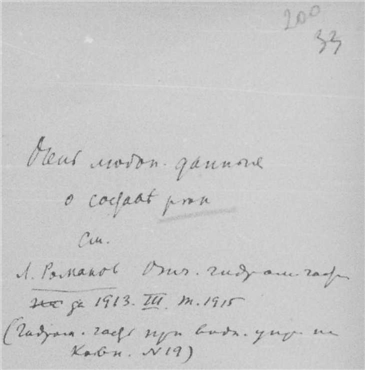 200
33
Очень любоп. данныя
о составѣ рѣки
см.
Л. Романов Отч. гидром. части
за 1913. III. т. 1915
(Гидром. часть при водн. упр. на
Кавк. N 19)